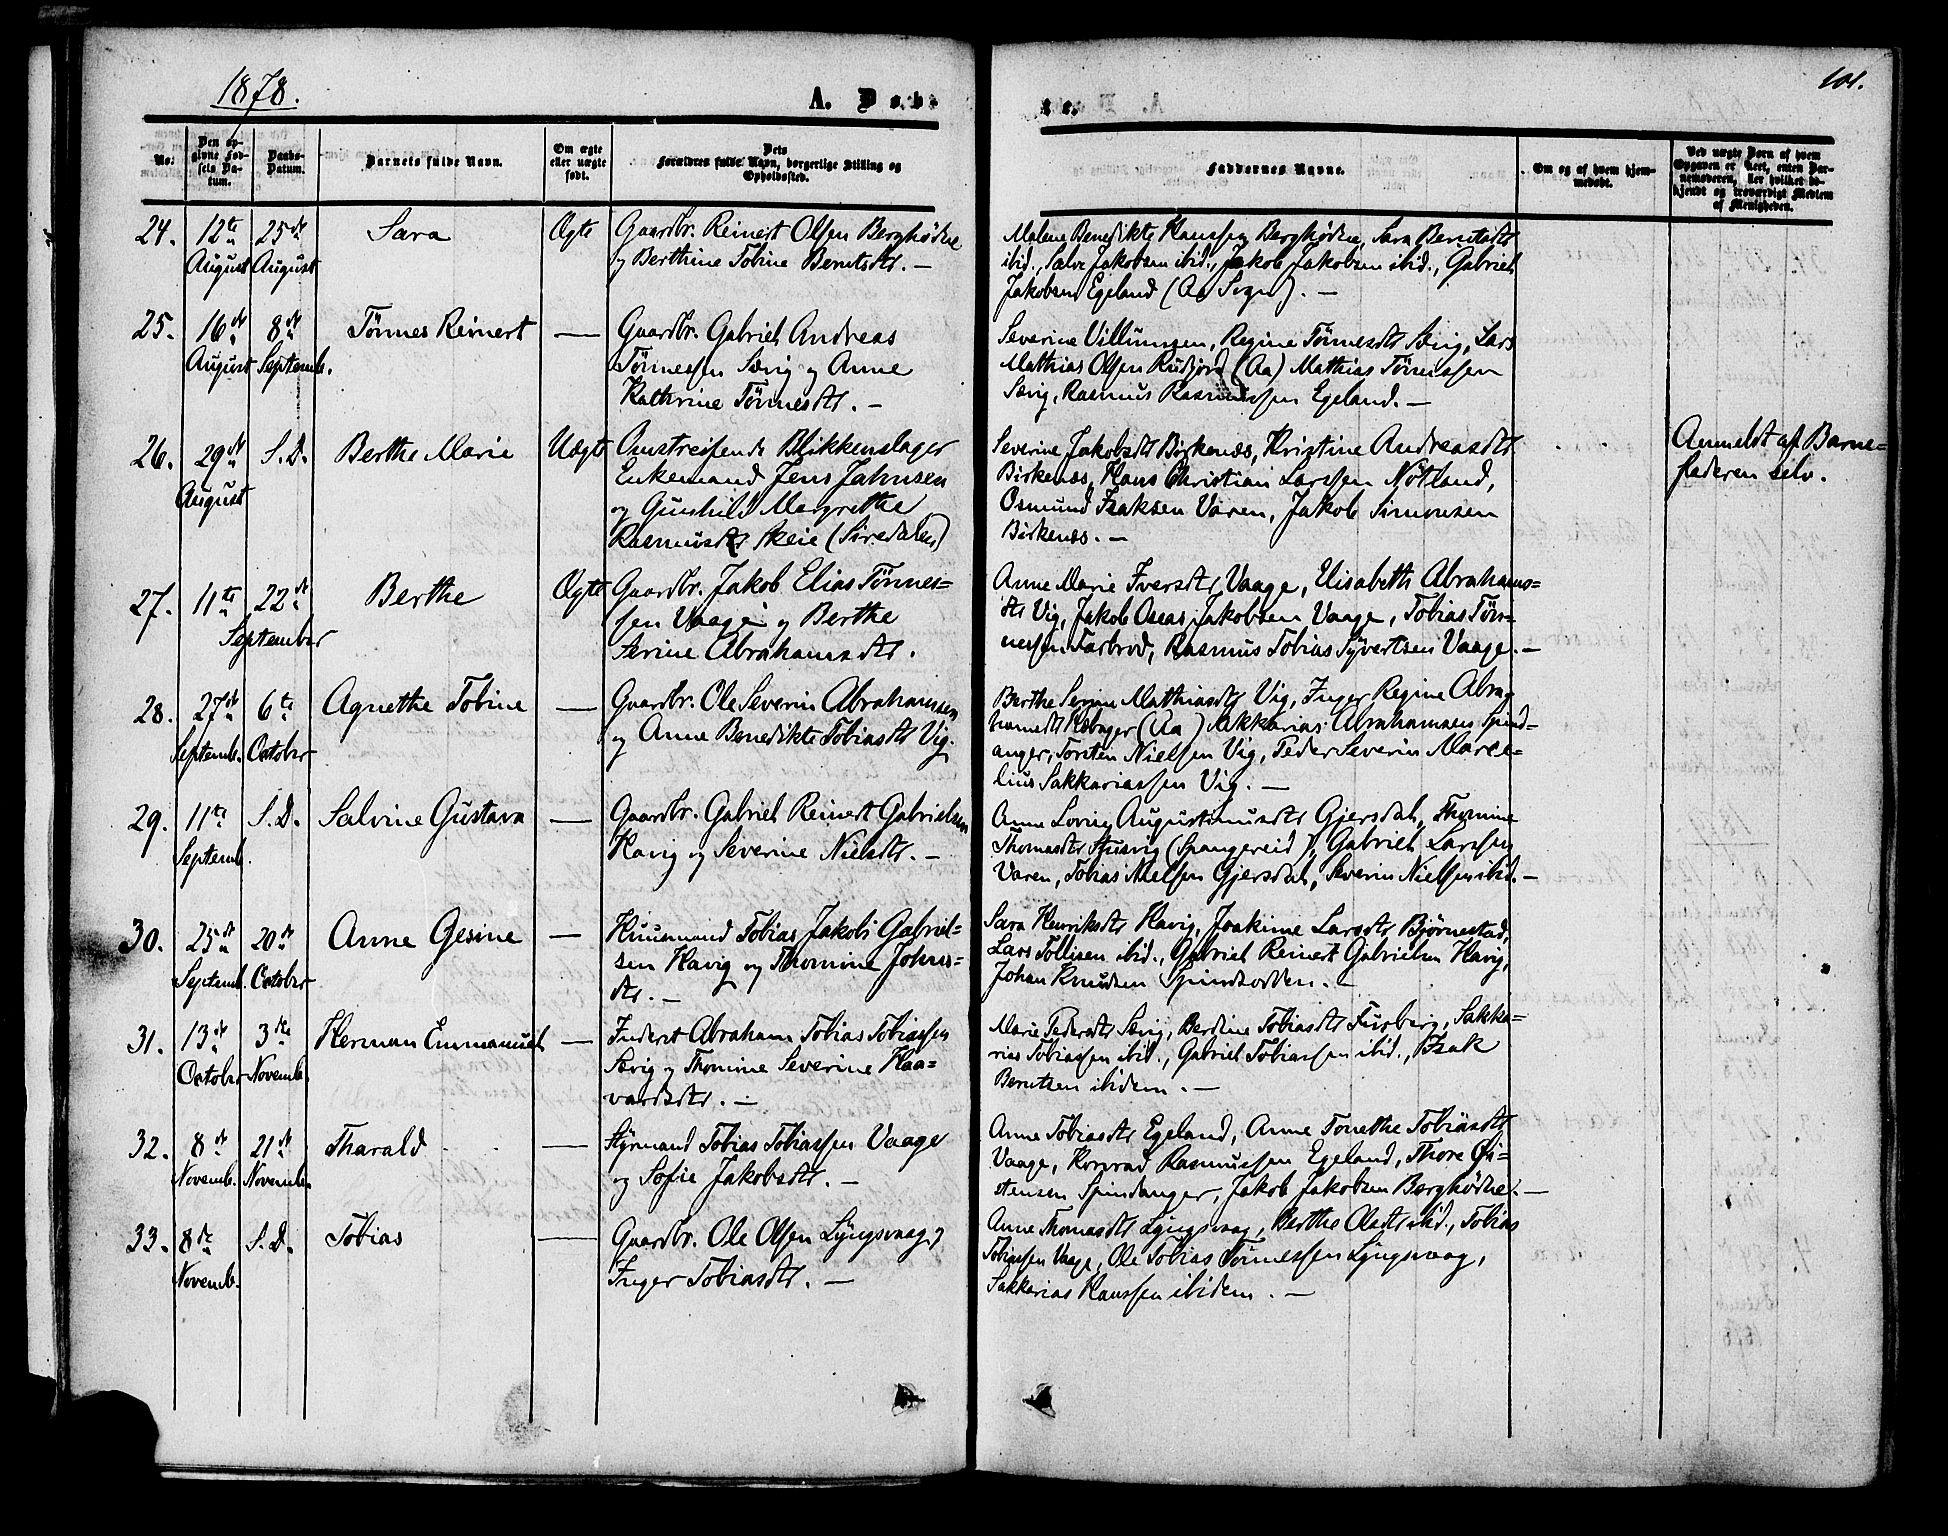 1878.
A. Døb-
te.
101.
No:
Den opgivne Fødsels Datum.
Daabs-Datum.
Barnets fulde Navn.
Om ægte eller uægte født.
Dets Forældres fulde Navn, borgerlige Stilling og Opholdssted.
Faddernes Navne.
Om og af hvem hjemmedøbt.
Ved uægte Børn af hvem Opgaven er skeet, enten Barnemoderen, eller hvilket bekjendt og troværdigt Medlem af Menigheden.
24. 12te August 25de August Sara Ægte Gaardbr. Reinert Olsen Berghødne
og Berthine Tobine Berntsdtr. —
Malene Benedikte Hanssen Berghødne, Sara Berntsdtr
ibid., Salve Jakobsen ibid., Jakob Jakobsen ibid., Gabriel
Jakobsen Egeland (Aa Sogn). —
25. 16de August 8de Septemb. Tönnes Reinert — Gaardbr. Gabriel Andreas
Tönnessen Sævig og Anne
Kathrine Tönnesdtr. —
Severine Villumsen, Regine Tönnesdtr Sævig, Lars
Mathias Olsen Rudjord (Aa) Mathias Tönnessen
Sævig, Rasmus Rasmussen Egeland. —
26. 29de August S.D. Berthe Marie Uægte Omstreifende Blikkenslager
Enkemand Jens Jahnsen
og Gunhild Margrethe
Rasmusdtr Skeie (Siredalen)
Severine Jakobsdtr Birkenæs, Kristine Andreasdtr
Birkenæs, Hans Christian Larssen Nötland,
Osmund Isaksen Varen, Jakob Simonsen
Birkenæs. —
Anmeldt af Barne-
faderen selv.
27. 11te 22de September Berthe Ægte Gaardbr. Jakob Elias Tönnes-
sen Vaage og Berthe
Serine Abrahamsdtr.
Anne Marie Iversdtr Vaage, Elisabeth Abrahams-
dtr Vig, Jakob Osias Jakobsen Vaage, Tobias Tön-
nessen Farbrod, Rasmus Tobias Syvertsen Vaage. —
28. 27de Septemb. 6te October Agnethe Tobine — Gaardbr. Ole Severin Abrahamsen
og Anne Benedikte Tobiasdtr Vig.
Berthe Serine Mathiasdtr Vig, Inger Regine Abra-
hamsdtr (Aa) Sakkarias Abrahamsen Spind-
anger, Torsten Nielsen Vig, Peder Severin Marce-
lius Sakkariassen Vig. —
29. 11te Septemb. S.D. Salvine Gustava — Gaardbr. Gabriel Reinert Gabrielsen
Havig og Severine Nielsdtr. —
Anne Lovise Augustinusdtr Gjersdal, Thomine
Thomasdtr Stusvig (Spangereid), Gabriel Larssen
Varen, Tobias Nielsen Gjersdal, Severin Nielsen ibid. —
30. 25de Septemb. 20de October Anne Gesine — Huusmand Tobias Jakob Gabriel-
sen Havig og Thomine Johns-
dtr. —
Sara Henriksdtr Havig, Joakime Larsdtr Bjørnestad,
Lars Tollisen ibid., Gabriel Reinert Gabrielsen Havig,
Johan Knudsen Spindsodden. —
31. 13de October 3die Novemb. Herman Emmanuel — Inderst Abraham Tobias Tobiassen
Sævig og Thomine Severine Haa-
vardsdtr. —
Marie Pedersdtr Sævig, Berdine Tobiasdtr Fuglevig, Sakka-
rias Tobiassen ibid., Gabriel Tobiassen ibid., Isak
Berntsen ibidem. —
32. 8de Novemb. 21de Novemb. Tharald — Styrmand Tobias Tobiassen Vaage
og Sofie Jakobsdtr. —
Anne Tobiasdtr Egeland, Anne Tonethe Tobiasdtr
Vaage, Konrad Rasmussen Egeland, Thore Øi-
stensen Spindanger, Jakob Jakobsen Berghødne. —
33. 8de Novemb. S.D. Tobias — Gaardbr. Ole Olsen Lyngsvaag og
Inger Tobiasdtr. —
Anne Thomasdtr Lyngsvaag, Berthe Olsdtr ibid., Tobias
Tobiassen Vaage, Ole Tobias Tönnessen Lyngsvaag,
Sakkarias Hanssen ibidem. —